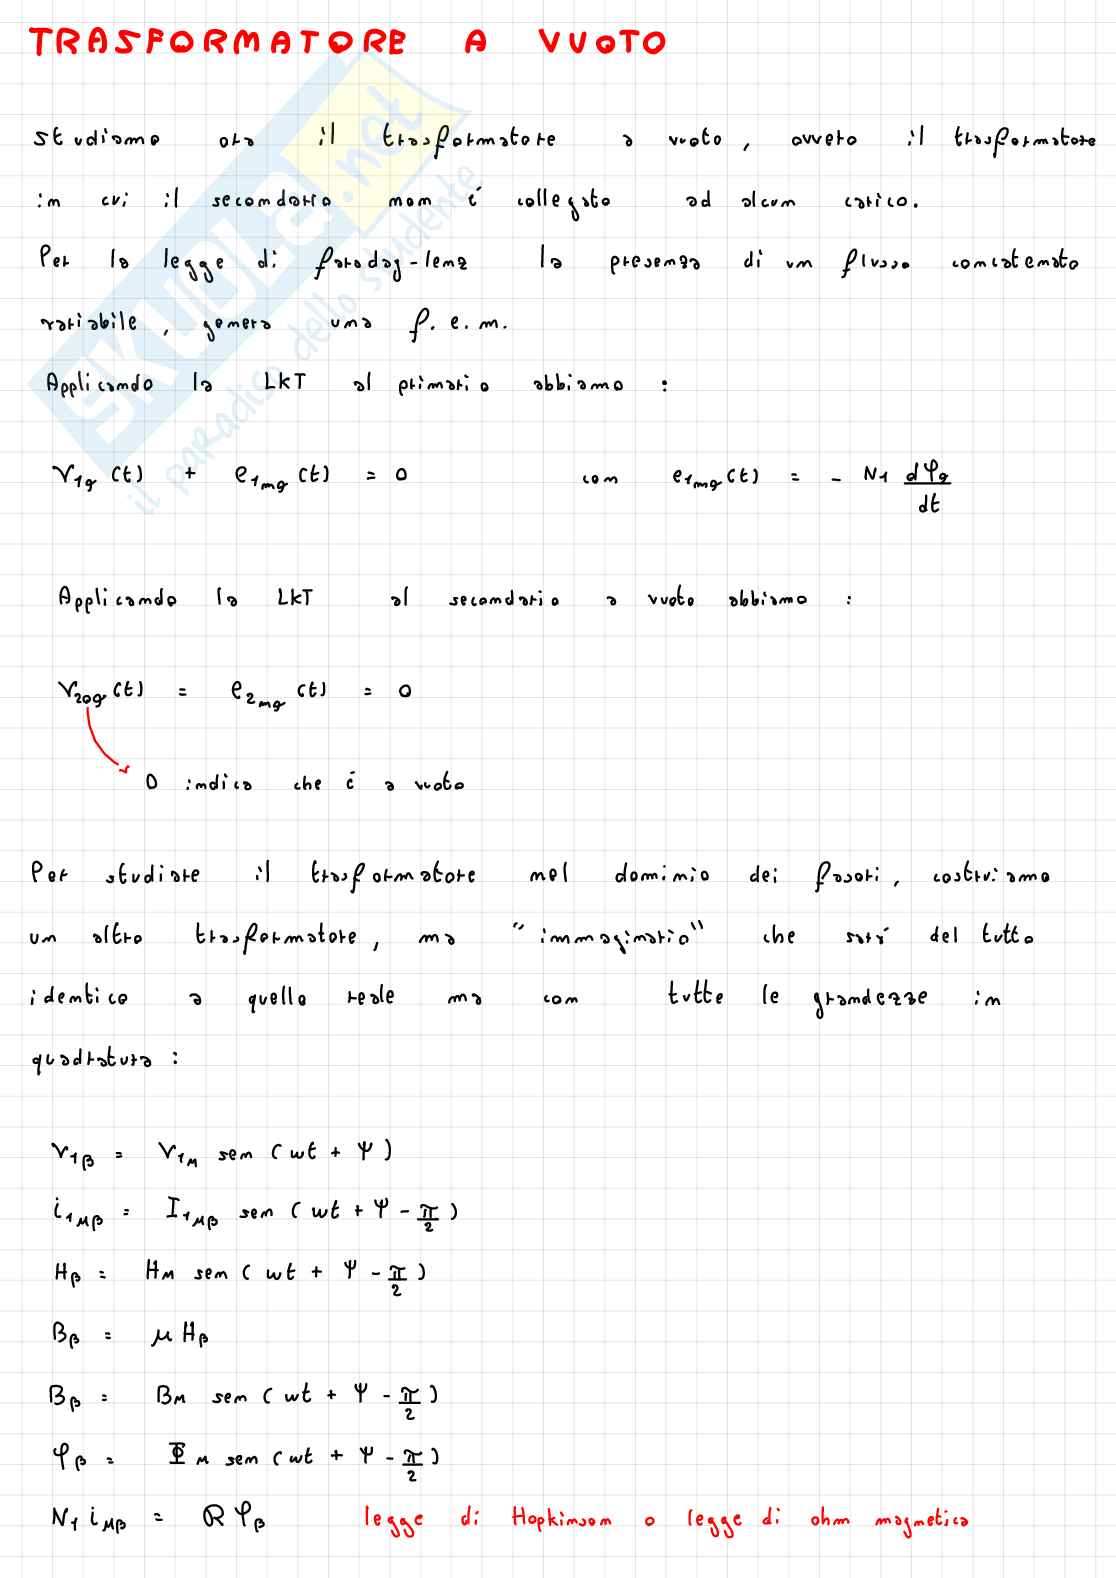 TRASFORMATORE A VUOTO
studiamo ora il trasformatore a vuoto, ovvero il trasformatore
in cui il secondario non é collegato ad alcun carico.
Per la legge di faraday-lenz la presenza di un flusso concatenato
variabile, genera una f.e.m.
Applicando la LKT al primario abbiamo:
v1g(t) + e1mg(t) = 0 con e1mg(t) = - N1 dφg/dt
Applicando la LKT al secondario a vuoto abbiamo:
v20g(t) = e2mg(t) = 0
0 indica che é a vuoto
Per studiare il trasformatore nel dominio dei fasori, costruiamo
un altro trasformatore, ma "immaginario" che sará del tutto
identico a quello reale ma con tutte le grandezze in
quadratura:
v1β = V1M sen(wt + Ψ)
i1μβ = I1μβ sen(wt + Ψ - π/2)
Hβ = HM sen(wt + Ψ - π/2)
Bβ = μHβ
Bβ = BM sen(wt + Ψ - π/2)
φβ = ΦM sen(wt + Ψ - π/2)
N1 iμβ = R φβ legge di Hopkinson o legge di ohm magnetica
SKUOLA.net
il paradiso dello studente